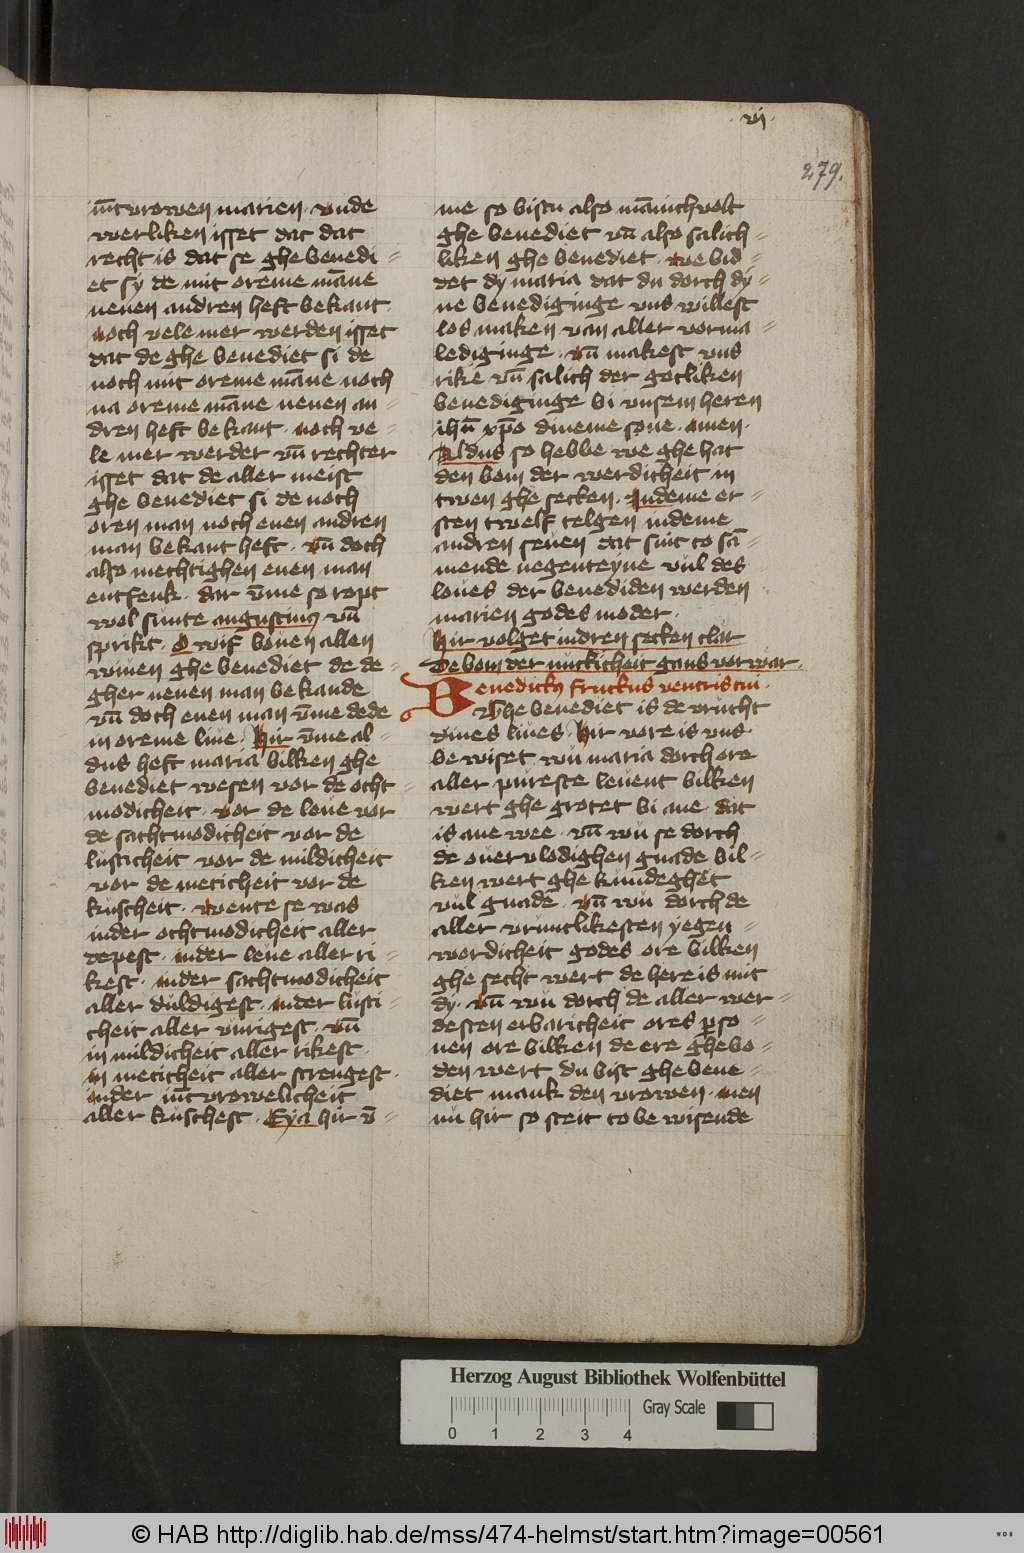 vj.
279.
iūcvrowen marien. vnde
werliken isset dat dat
recht is dat se ghebenedi-
et sy de mit oreme māne
nenen andren heft bekant.
noch vele mer werden isset
dat de ghe benediet si de
noch mit oreme māne noch
na oreme māne nenen an-
dren heft bekant. noch ve-
le mer werder vn̄ rechter
isset dat de aller meist
ghe benediet si de noch
oren man noch enen andren
man bekant heft. vn̄ doch
also mechtighen enen man
entfenk. dar v̄me so ropt
wol sunte augustinus vn̄
sprikt. O wif bouen allen
wiuen ghe benediet de de-
gher nenen man bekande
vn̄ doch enen man v̄me dede
in oreme liue. Hir v̄me al-
dus heft maria billken ghe
benediet wesen vor de otht-
modicheit. vor de leue vor
de sachtmodicheit vor de
lusticheit vor de mildicheit
vor de meticheit vor de
kuscheit. wente se was
inder othtmodicheit aller
depest. inder leue aller ri-
kest. inder sachtmodicheit
aller duldigest. inder lusti-
cheit aller vurigest. vn̄
in mildicheit aller rikest.
in meticheit aller strengest.
inder iūcvrowelicheit
aller kuschest. Eya hir v̄-
me so bistu also mānichvolt
ghe benediet vn̄ also salich-
liken ghe benediet. we bid-
det dy maria dat du dorch dy-
ne benediginge vns willest
los maken van aller vorma-
lediginge. vn̄ makest vns
rike vn̄ salich der gotliken
benediginge bi vnsem heren
ihū xp̄o dineme sone. Amen.
Aldus so hebbe we ghe hat
den bom der werdicheit in
twen ghe secken. Indeme er-
sten twelf telgen indeme
andren seuen dat sint to sā-
mende negenteyne vul des
loues der benediden werden
marien godes moder.
Hir volget indren secken clar
De bom der nutticheit gans vorwar.
Benedictus fructus ventris tui.
Ghe benediet is de vrucht
dines liues. Hir vore is vns
be wiset wu maria dorch ore
aller pureste leuent billken
wert ghe grotet bi aue. dat
is ane wee. vn̄ wu se dorch
de ouervlodighen gnade bil-
ken wert ghe kundeghet
vul gnade. vn̄ wu dorch de
aller vruntlikesten yegen-
wordicheit godes ore billken
ghe secht wert de here is mit
dy. vn̄ wu dorch de aller wer-
desten erbaricheit ores p̄so-
nen ore billken de ere ghebo-
den wert du bist ghe bene-
diet mank den vrowen. men
nu hir so steit to be wisende
Herzog August Bibliothek Wolfenbüttel
Gray Scale
0 1 2 3 4
© HAB http://diglib.hab.de/mss/474-helmst/start.htm?image=00561
WDB